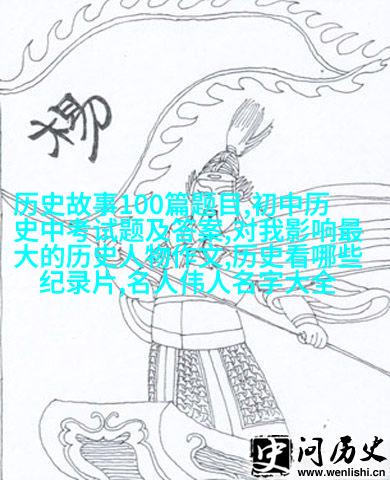 杨
历史故事100篇题目,初中历
史中考试题及答案,对我影响最
大的历史人物作文,历史看哪些
纪录片,名人伟人名字大全
史 问历史
www.wenlishi.cn